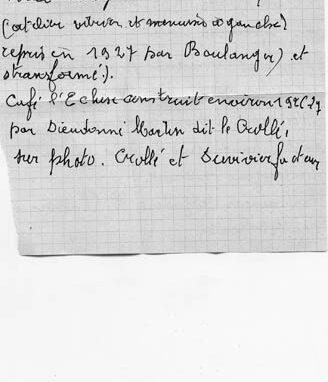 (atelier vitrier et menuisier à gauche)
repris en 1927 par Boulanger) et
transformé).
Café l'Ecluse construit environ
par Dieudonné Martin dit le Crollé,
sur photo. Crollé et